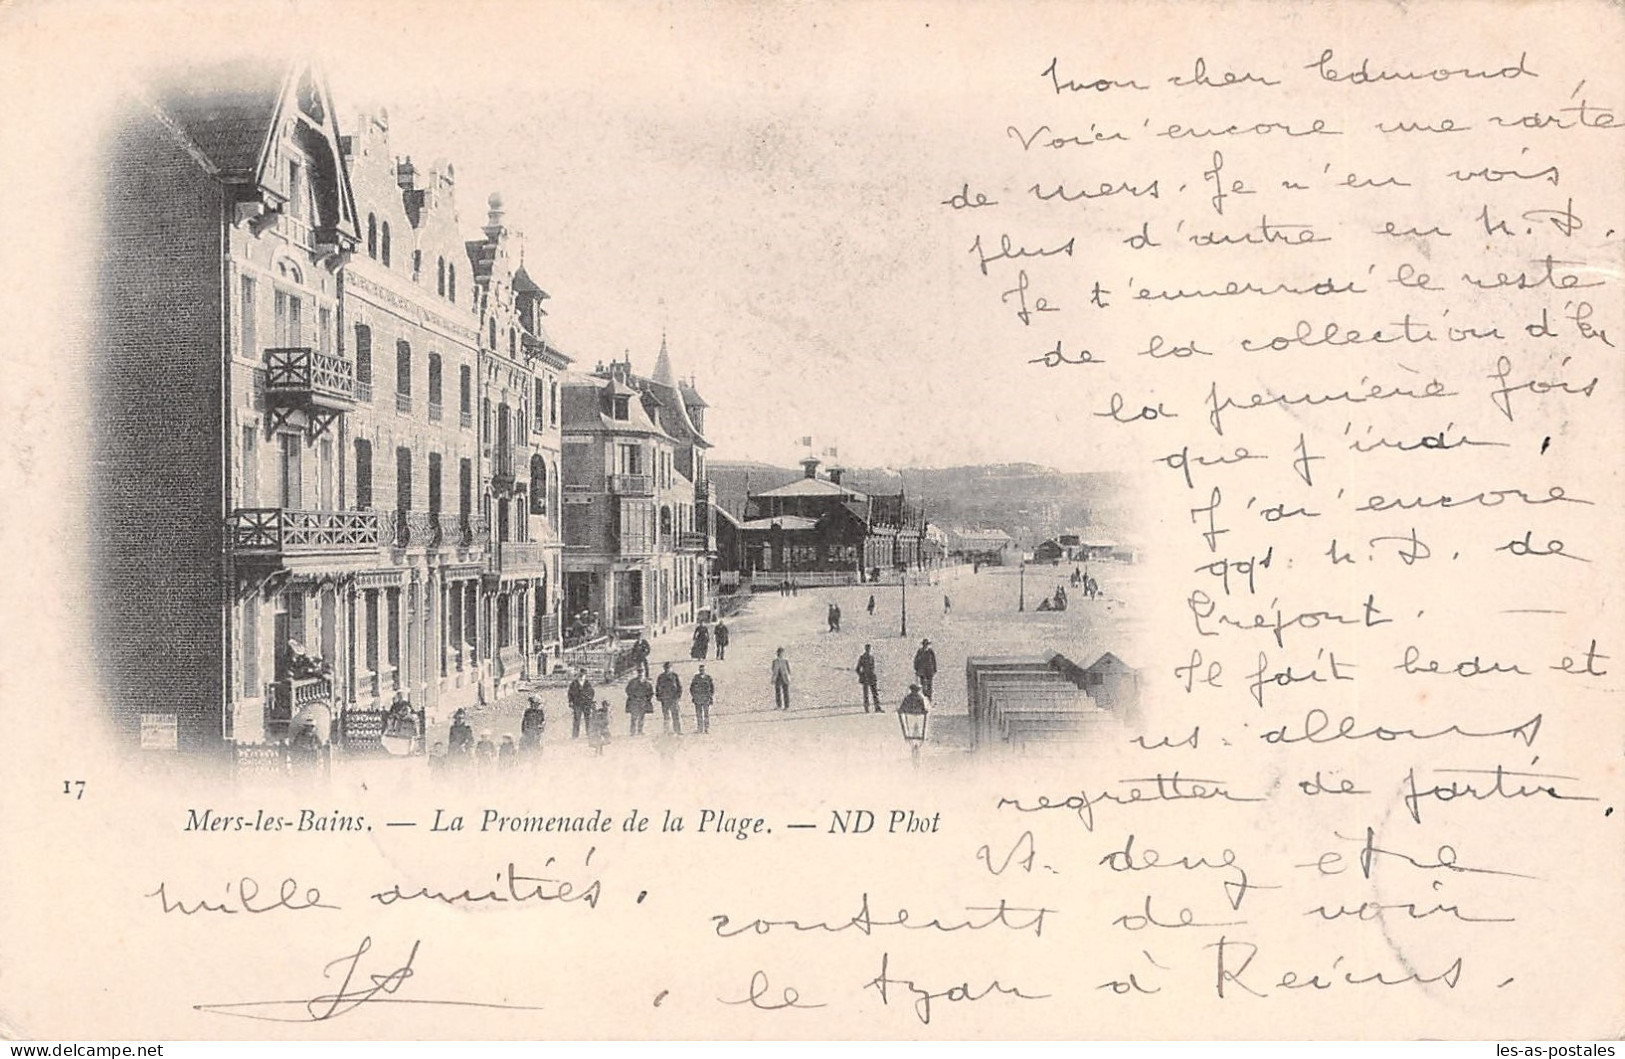 Mon cher Edmond,
Voici encore une carte
de Mers. Je n'en vois
plus d'autre en N.D.
Je t'enverrai le reste
de la collection d'Eu
la première fois
que j'irai.
J'ai encore
qqs. N.D. de
Tréport. —
Il fait beau et
ns. allons
regretter de partir.
Vs. devez être
contents de voir
le tzar à Reims.
17
Mers-les-Bains. — La Promenade de la Plage. — ND Phot
Mille amitiés.
les-as-postales.delcampe.net
les-as-postales